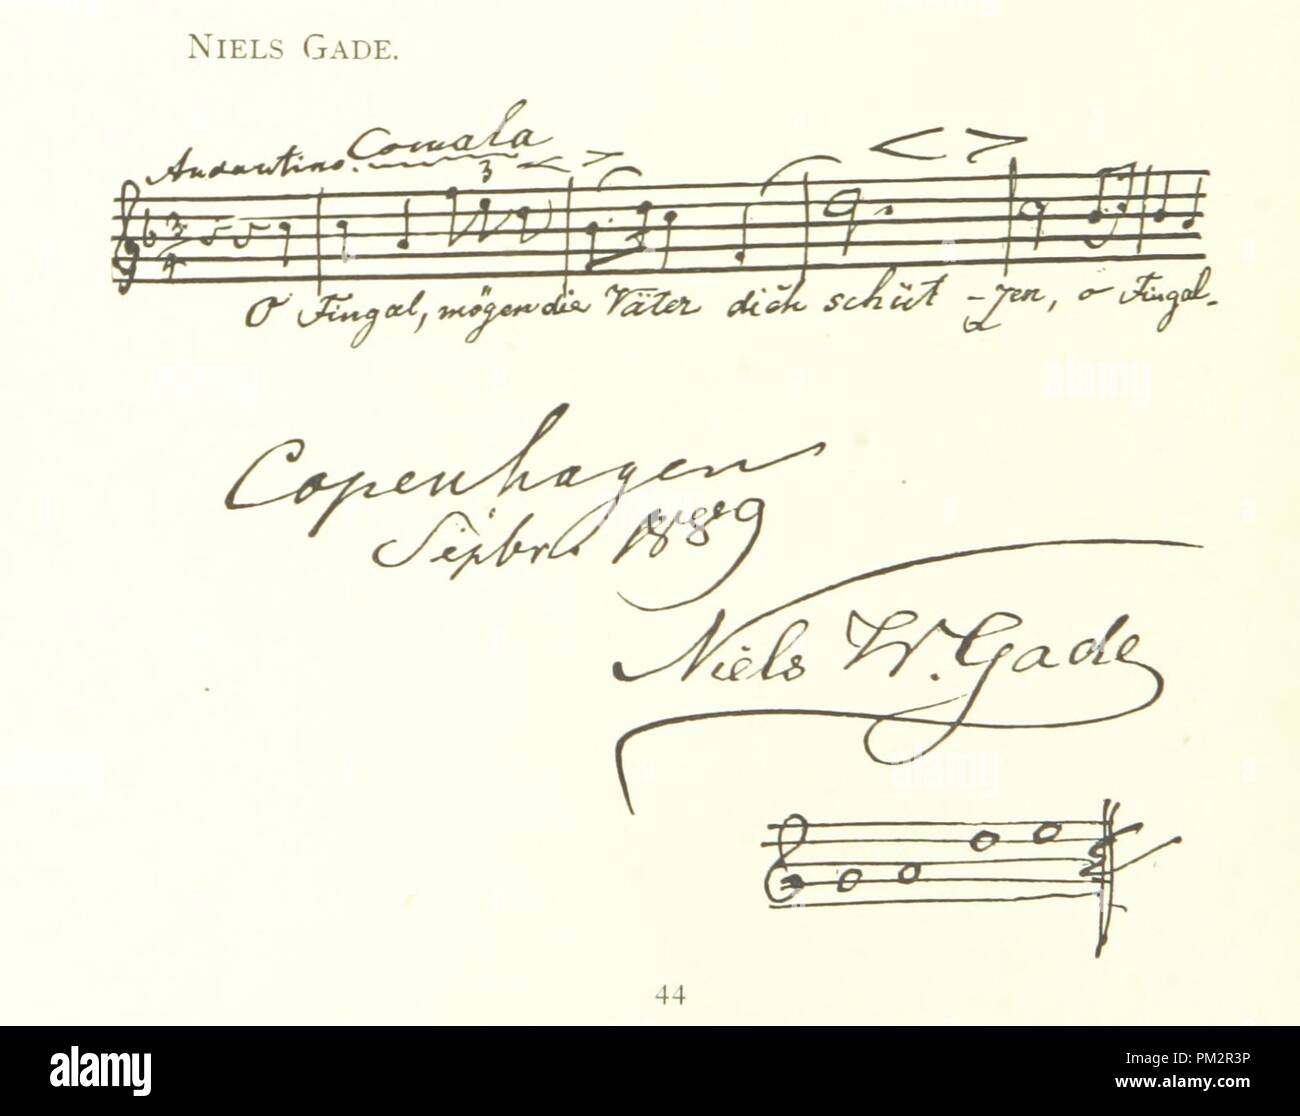 NIELS GADE.
Andantino. Comala
3
3
4
O Fingal, mögen die Väter dich schüt -zen, o Fingal.
Copenhagen
Sepbr. 1889
Niels W. Gade
44
alamy
Image ID: PM2R3P
www.alamy.com